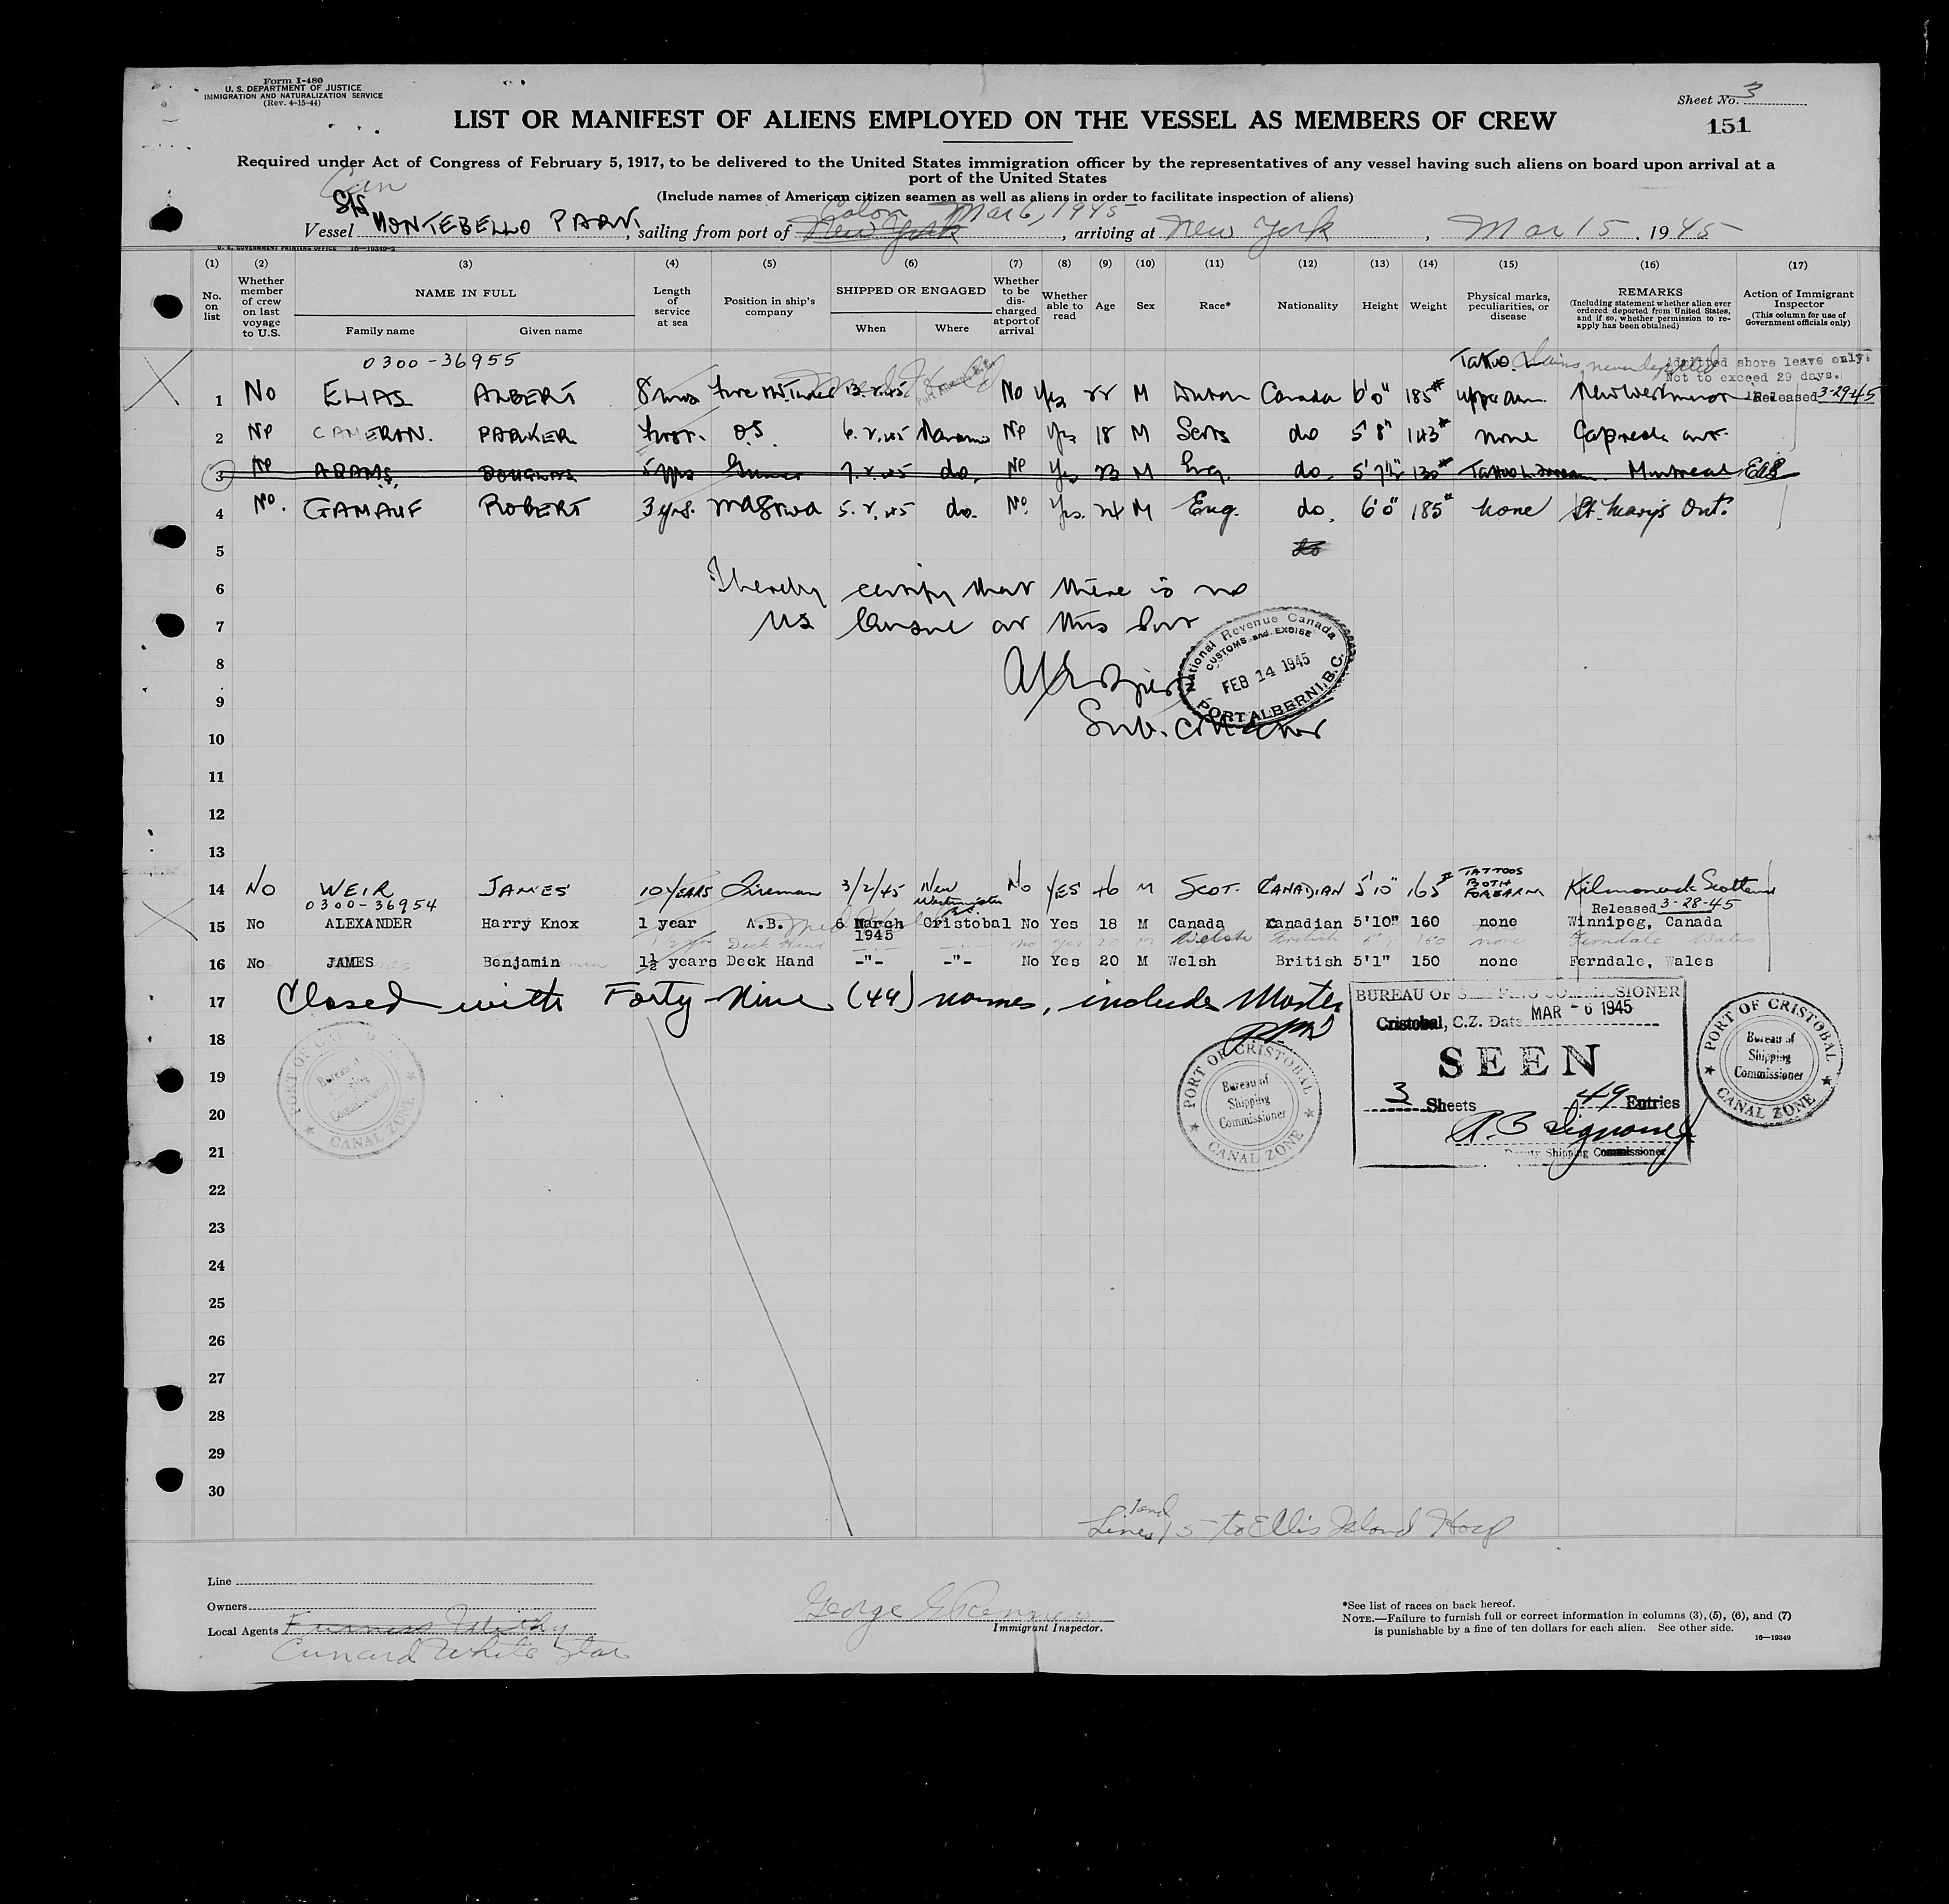 Form I-480
U. S. DEPARTMENT OF JUSTICE
IMMIGRATION AND NATURALIZATION SERVICE
(Rev. 4-15-44)
Sheet No. 3
151
LIST OR MANIFEST OF ALIENS EMPLOYED ON THE VESSEL AS MEMBERS OF CREW
Required under Act of Congress of February 5, 1917, to be delivered to the United States immigration officer by the representatives of any vessel having such aliens on board upon arrival at a
port of the United States
(Include names of American citizen seamen as well as aliens in order to facilitate inspection of aliens)
Can
Colon Mar 6, 1945
Vessel S/S MONTEBELLO PARK, sailing from port of New York, arriving at New York, Mar 15, 1945
U. S. GOVERNMENT PRINTING OFFICE 16-19349-2
(1) (2) (3) (4) (5) (6) (7) (8) (9) (10) (11) (12) (13) (14) (15) (16) (17)
No. on list
Whether member of crew on last voyage to U.S.
NAME IN FULL
Family name
Given name
Length of service at sea
Position in ship's company
SHIPPED OR ENGAGED
When
Where
Whether to be discharged at port of arrival
Whether able to read
Age
Sex
Race*
Nationality
Height
Weight
Physical marks, peculiarities, or disease
REMARKS
(Including statement whether alien ever ordered deported from United States, and if so, whether permission to reapply has been obtained)
Action of Immigrant Inspector
(This column for use of Government officials only)
0300-36955
Tattoo Claims never deported
Admitted shore leave only.
Not to exceed 29 days.
1 No ELIAS ALBERT 8 mos 13.2.45 Port Alberni B.C. No Yes 22 M Canada 6'0" 185# upper arm. New Westminster Released 3-29-45
2 No CAMERON. PARKER O.S. 6.2.45 Nanaimo No Yes 18 M Scots do 5'8" 143# none Capreol ont.
3 No ADAMS, DOUGLAS Gunner 7.2.45 do. No Yes 23 M Eng. do. 5'7½" 130# Tattoo L. forearm. Montreal
4 No. GAMAUF ROBERT 3 yrs. 5.2.45 do. No. Yes. 24 M Eng. do. 6'0" 185# none St. Mary's Ont.
5 do
6 I hereby certify that there is no
7 US Consul at this port
8
9
10 Sub. Collector
National Revenue Canada
CUSTOMS and EXCISE
FEB 14 1945
PORT ALBERNI, B.C.
11
12
13
14 No WEIR JAMES 10 YEARS Fireman 3/2/45 New Westminster B.C. No YES 46 M SCOT. CANADIAN 5'10" 165# TATTOOS BOTH FOREARM Kilmarnock Scotland
0300-36954
Released 3-28-45
15 No ALEXANDER Harry Knox 1 year A.B. 6 March 1945 Cristobal No Yes 18 M Canada Canadian 5'10" 160 none Winnipeg, Canada
1½ yrs Deck Hand no yes 20 M Welsh British 5'1 150 none Ferndale Wales
16 No JAMES Benjamin 1½ years Deck Hand -"- -"- No Yes 20 M Welsh British 5'1" 150 none Ferndale, Wales
17 Closed with Forty-Nine (49) names, includes Master
BUREAU OF SHIPPING COMMISSIONER
Cristobal, C.Z. Date MAR - 6 1945
SEEN
3 Sheets 49 Entries
Deputy Shipping Commissioner
PORT OF CRISTOBAL
Bureau of
Shipping
Commissioner
CANAL ZONE
PORT OF CRISTOBAL
Bureau of
Shipping
Commissioner
CANAL ZONE
PORT OF CRISTOBAL
Bureau of
Shipping
Commissioner
CANAL ZONE
18
19
20
21
22
23
24
25
26
27
28
29
30
Lines 1 and 15 to Ellis Island Hosp
Line
Owners
Local Agents Furness Withy
Cunard White Star
George
Immigrant Inspector.
*See list of races on back hereof.
NOTE.—Failure to furnish full or correct information in columns (3), (5), (6), and (7)
is punishable by a fine of ten dollars for each alien. See other side.
16—19349